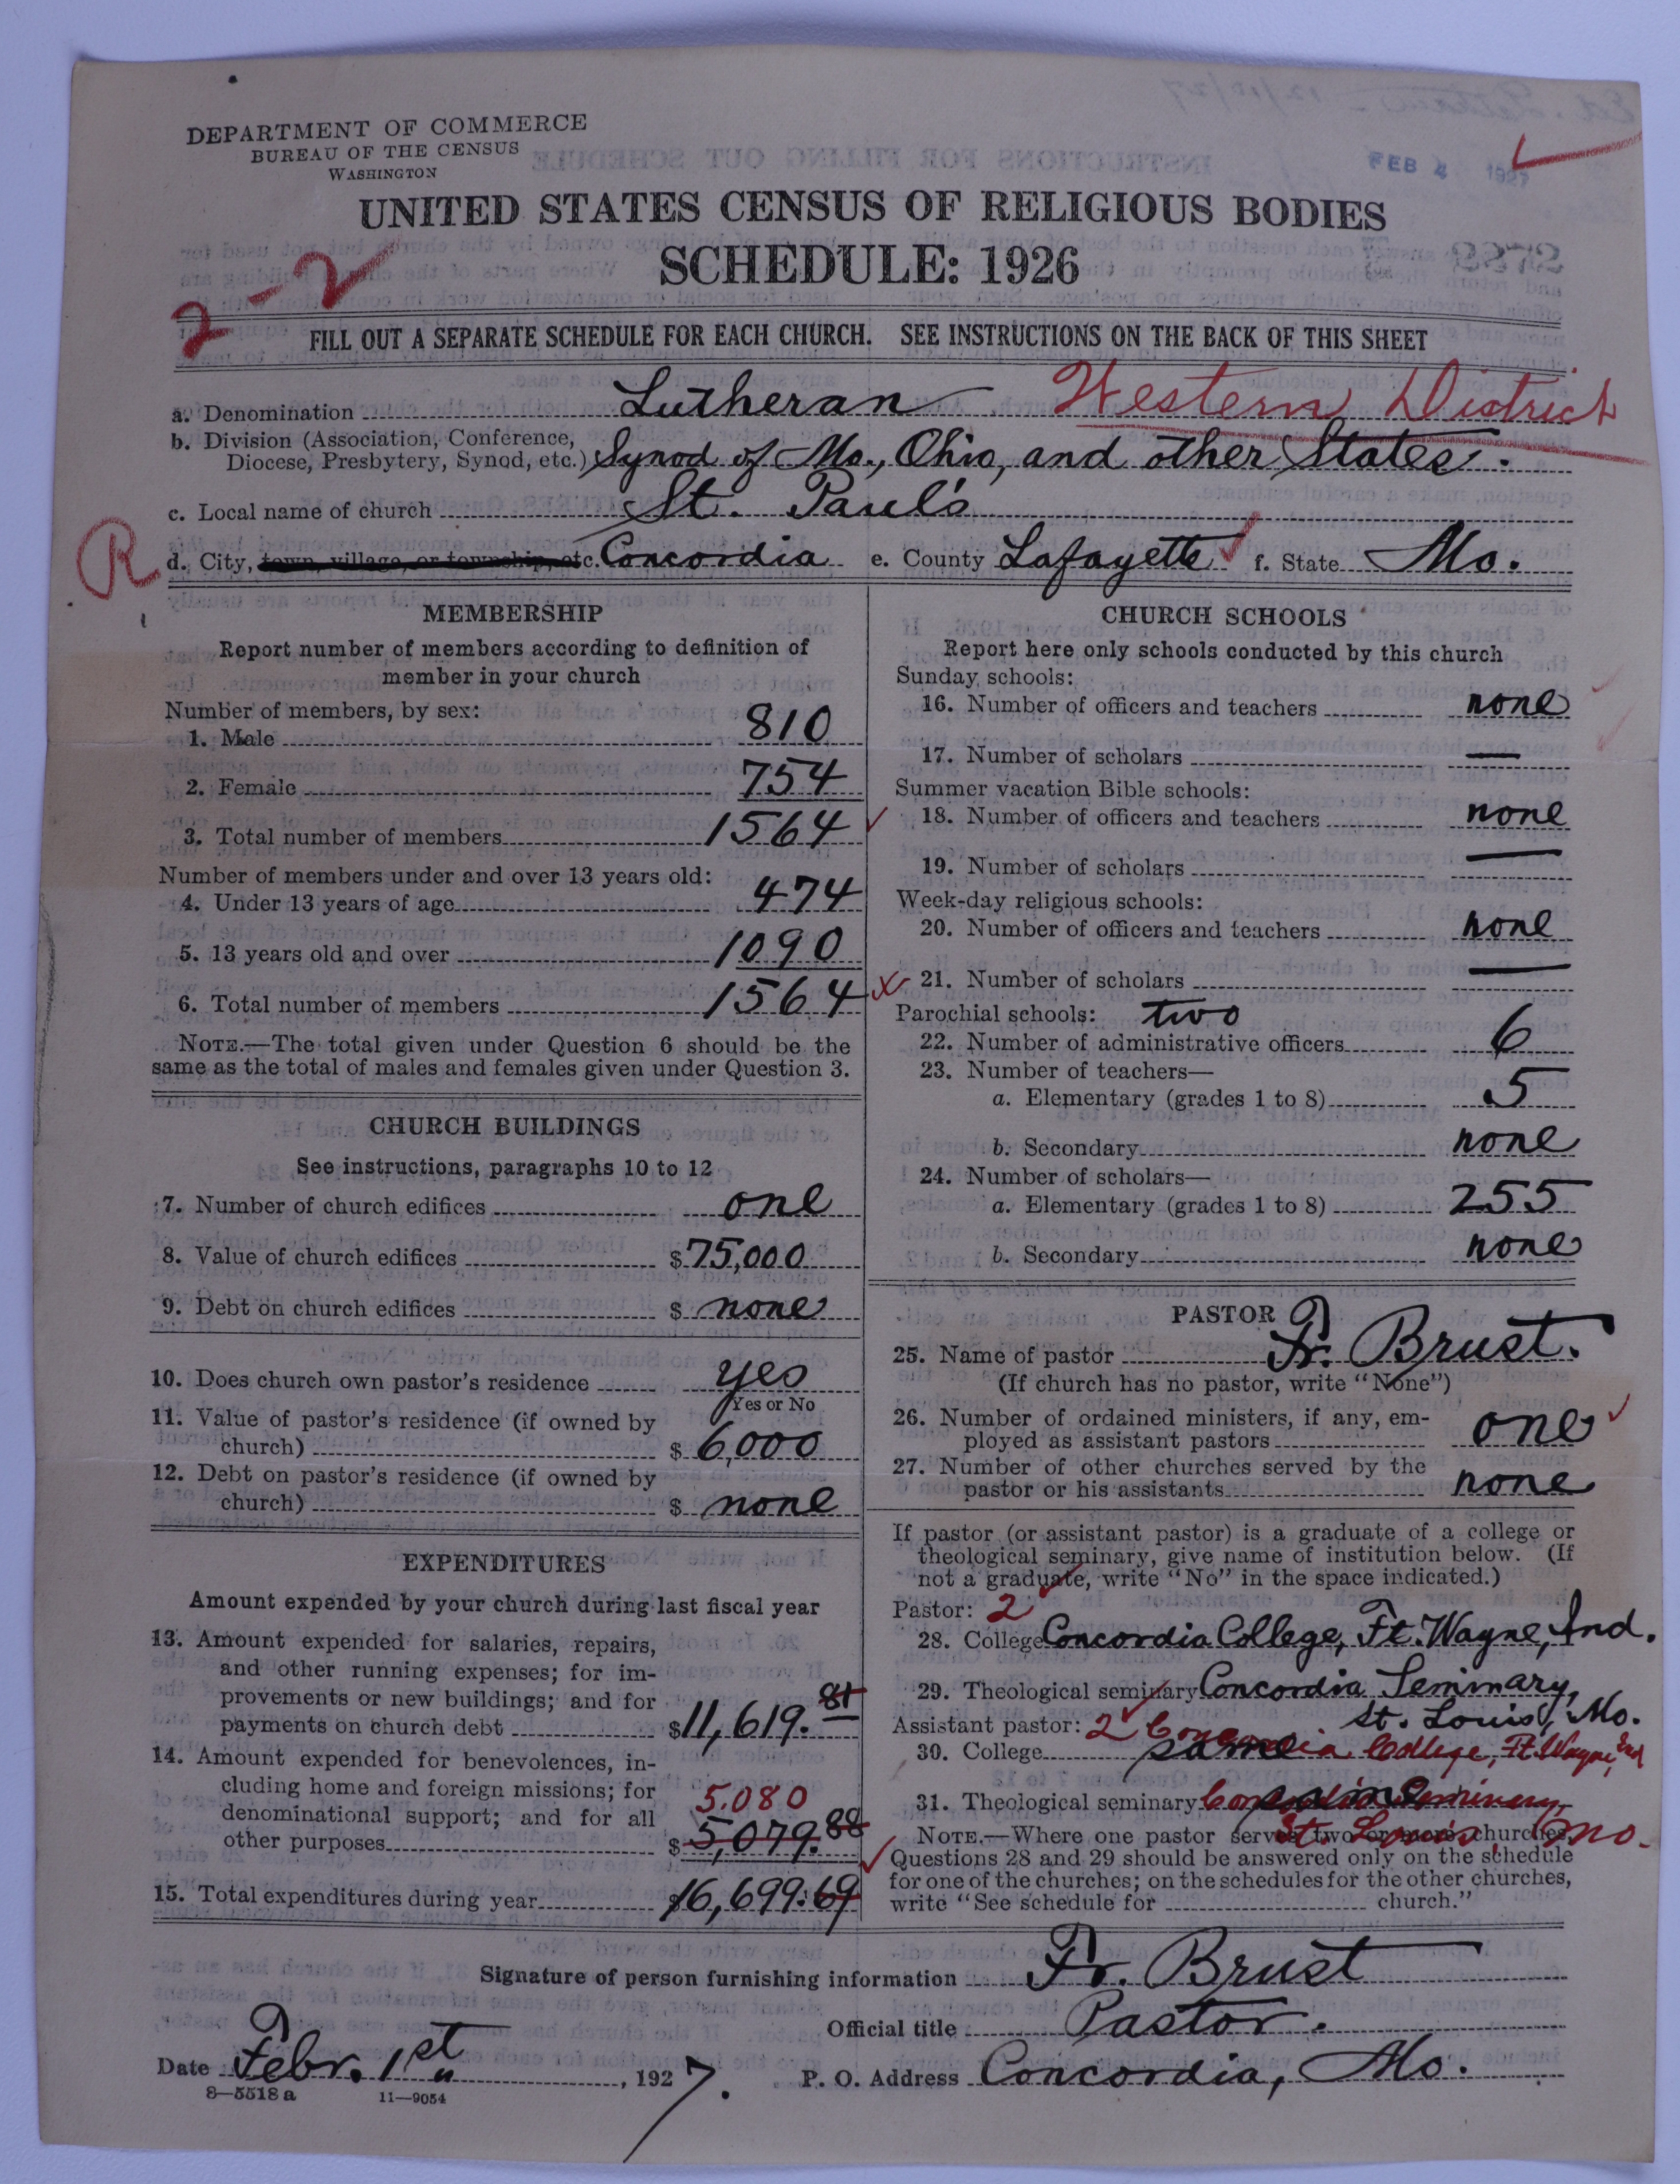 DEPARTMENT OF COMMERCE
BUREAU OF THE CENSUS
WASHINGTON
FEB 4 1927
UNITED STATES CENSUS OF RELIGIOUS BODIES
SCHEDULE: 1926
2-2
FILL OUT A SEPARATE SCHEDULE FOR EACH CHURCH. SEE INSTRUCTIONS ON THE BACK OF THIS SHEET
a. Denomination Lutheran Western District
b. Division (Association, Conference,
Diocese, Presbytery, Synod, etc.) Synod of Mo., Ohio, and other States.
c. Local name of church St. Paul's
R d. City, town, village, or township, etc. Concordia e. County Lafayette f. State Mo.
MEMBERSHIP
Report number of members according to definition of
member in your church
Number of members, by sex:
1. Male 810
2. Female 754
3. Total number of members 1564
Number of members under and over 13 years old:
4. Under 13 years of age 474
5. 13 years old and over 1090
6. Total number of members 1564
NOTE.—The total given under Question 6 should be the
same as the total of males and females given under Question 3.
CHURCH BUILDINGS
See instructions, paragraphs 10 to 12
7. Number of church edifices one
8. Value of church edifices $75,000
9. Debt on church edifices $ none
10. Does church own pastor's residence yes
Yes or No
11. Value of pastor's residence (if owned by
church) $ 6,000
12. Debt on pastor's residence (if owned by
church) $ none
EXPENDITURES
Amount expended by your church during last fiscal year
13. Amount expended for salaries, repairs,
and other running expenses; for im-
provements or new buildings; and for
payments on church debt $11,619.81
14. Amount expended for benevolences, in-
cluding home and foreign missions; for
denominational support; and for all 5.080
other purposes $5,079.88
15. Total expenditures during year $16,699.69
CHURCH SCHOOLS
Report here only schools conducted by this church
Sunday schools:
16. Number of officers and teachers none
17. Number of scholars —
Summer vacation Bible schools:
18. Number of officers and teachers none
19. Number of scholars —
Week-day religious schools:
20. Number of officers and teachers none
21. Number of scholars —
Parochial schools: two
22. Number of administrative officers 6
23. Number of teachers—
a. Elementary (grades 1 to 8) 5
b. Secondary none
24. Number of scholars—
a. Elementary (grades 1 to 8) 255
b. Secondary none
PASTOR
25. Name of pastor Fr. Brust.
(If church has no pastor, write "None")
26. Number of ordained ministers, if any, em-
ployed as assistant pastors one
27. Number of other churches served by the
pastor or his assistants none
If pastor (or assistant pastor) is a graduate of a college or
theological seminary, give name of institution below. (If
not a graduate, write "No" in the space indicated.)
Pastor: 2
28. College Concordia College, Ft. Wayne, Ind.
29. Theological seminary Concordia Seminary,
St. Louis, Mo.
Assistant pastor: 2
30. College same Concordia College, Ft. Wayne, Ind
31. Theological seminary same Concordia Seminary,
St. Louis, Mo.
NOTE.—Where one pastor serves two or more churches,
Questions 28 and 29 should be answered only on the schedule
for one of the churches; on the schedules for the other churches,
write "See schedule for church."
Signature of person furnishing information Fr. Brust
Official title Pastor.
Date Febr. 1st, 1927. P. O. Address Concordia, Mo.
8—5518 a 11—9054